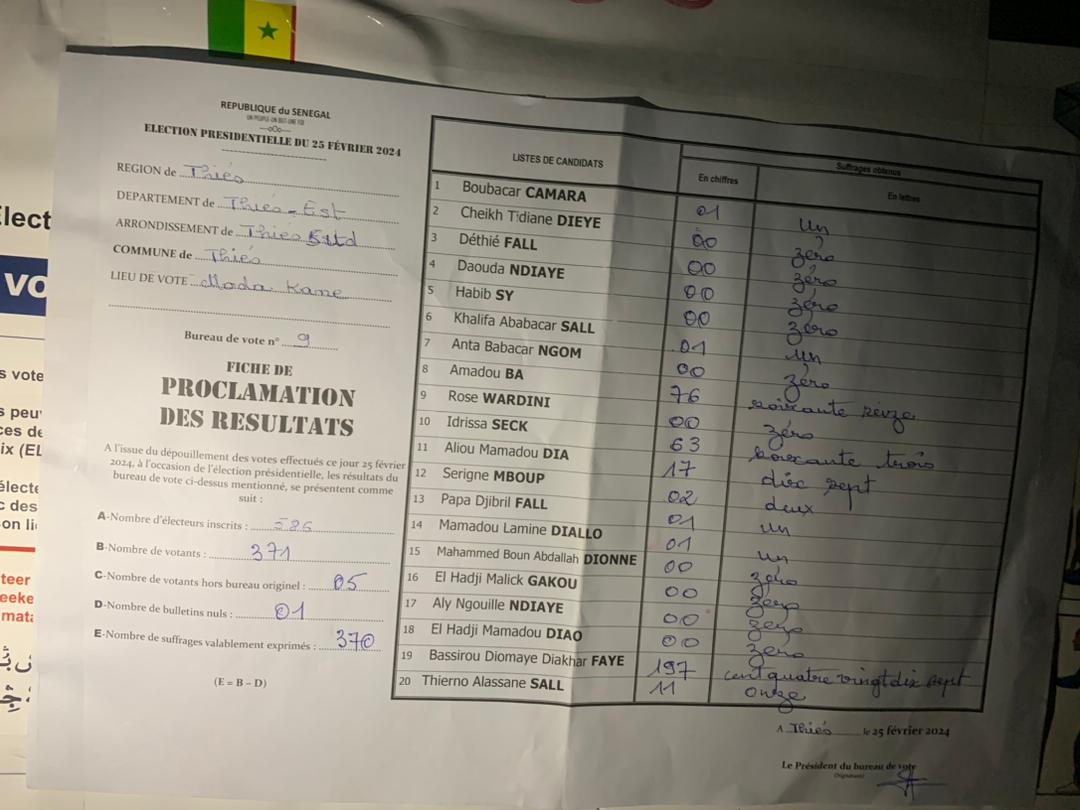 REPUBLIQUE du SENEGAL
UN PEUPLE-UN BUT-UNE FOI
---oOo---
ELECTION PRESIDENTIELLE DU 25 FÉVRIER 2024
REGION de Thiès
DEPARTEMENT de Thiès-Est
ARRONDISSEMENT de Thies
COMMUNE de Thiès
LIEU DE VOTE Mada Kane
Bureau de vote n° 9
FICHE DE
PROCLAMATION
DES RESULTATS
A l'issue du dépouillement des votes effectués ce jour 25 février
2024, à l'occasion de l'élection présidentielle, les résultats du
bureau de vote ci-dessus mentionné, se présentent comme
suit :
A-Nombre d'électeurs inscrits : 586
B-Nombre de votants : 371
C-Nombre de votants hors bureau originel : 05
D-Nombre de bulletins nuls : 01
E-Nombre de suffrages valablement exprimés : 370
(E = B – D)
LISTES DE CANDIDATS
Suffrages obtenus
En chiffres En lettres
1 Boubacar CAMARA 01 Un
2 Cheikh Tidiane DIEYE 00 zéro
3 Déthié FALL 00 zéro
4 Daouda NDIAYE 00 zéro
5 Habib SY 00 zéro
6 Khalifa Ababacar SALL 01 un
7 Anta Babacar NGOM 00 zéro
8 Amadou BA 76 soixante seize
9 Rose WARDINI 00 zéro
10 Idrissa SECK 63 soixante trois
11 Aliou Mamadou DIA 17 dix sept
12 Serigne MBOUP 02 deux
13 Papa Djibril FALL 01 un
14 Mamadou Lamine DIALLO 01 un
15 Mahammed Boun Abdallah DIONNE 00 zéro
16 El Hadji Malick GAKOU 00 zero
17 Aly Ngouille NDIAYE 00 zero
18 El Hadji Mamadou DIAO 00 zero
19 Bassirou Diomaye Diakhar FAYE 197 cent quatre vingt dix sept
20 Thierno Alassane SALL 11 onze
A Thiès le 25 février 2024
Le Président du bureau de vote
(Signature)
Elect
VO
s vote
s peu
ces de
ix (EL
électe
c des
on li
teer
eeke
mata